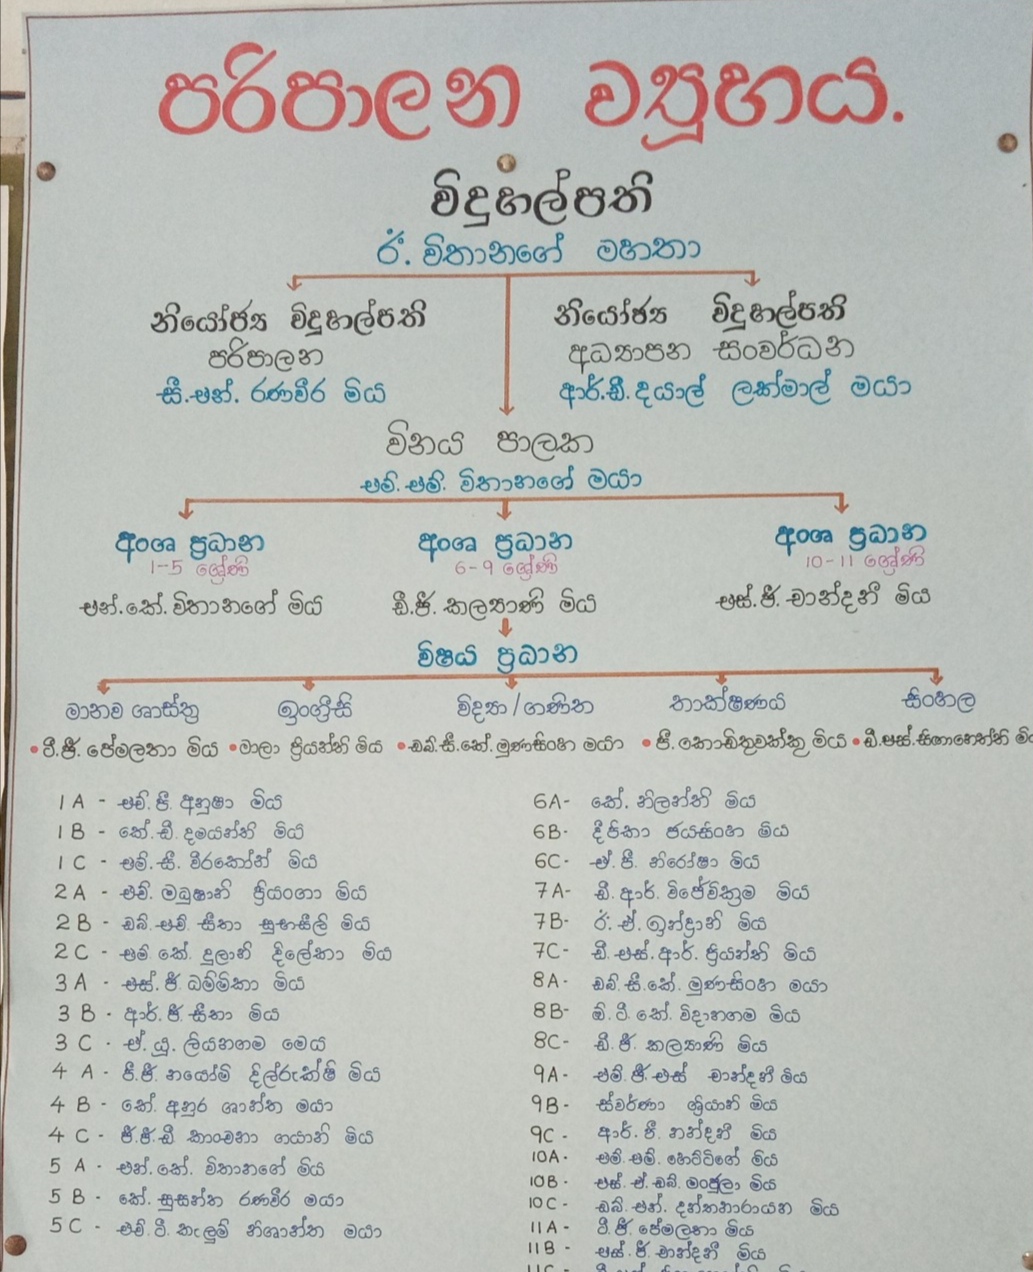 පරිපාලන ව්‍යුහය.
විදුහල්පති
ඊ. විතානගේ මහතා
නියෝජ්‍ය විදුහල්පති
පරිපාලන
සී.එන්. රණවීර මිය
නියෝජ්‍ය විදුහල්පති
අධ්‍යාපන සංවර්ධන
ආර්.ඩී.දයාල් ලක්මාල් මයා
විනය පාලක
එම්.එම්. විතානගේ මයා
අංශ ප්‍රධාන
1-5 ශ්‍රේණි
එන්.කේ.විතානගේ මිය
අංශ ප්‍රධාන
6-9 ශ්‍රේණි
ඩී.ජී. කල්‍යාණි මිය
අංශ ප්‍රධාන
10-11 ශ්‍රේණි
එස්.ජී.චාන්දනී මිය
විෂය ප්‍රධාන
මානව ශාස්ත්‍ර
ඉංග්‍රීසි
විද්‍යා/ගණිත
තාක්ෂණය
සිංහල
ටී.ජී. ප්‍රේමලතා මිය
මාලා ප්‍රියන්ති මිය
ඩබ්.සී.කේ.මුණසිංහ මයා
පී. කොඩිතුවක්කු මිය
1A - එච්.පී. අනුෂා මිය
1B - කේ.ඩී.දමයන්ති මිය
1C - එම්.සී. වීරකෝන් මිය
2A - එච්. මධුෂානි ප්‍රියංගා මිය
2B - ඩබ්.එච්.සීතා සුභසීලි මිය
2C - එම් කේ. දුලානි දිලේකා මිය
3A - එස්.ජී. ධම්මිකා මිය
3B - ආර්.ජී. සීතා මිය
3C - ඒ. යූ. ලියනගම මෙය
4A - පී.ජී. නයෝමි දිල්රුක්ෂි මිය
4B - කේ. අනුර ශාන්ත මයා
4C - ජී.ජී.ඩී කාංචනා ගයානි මිය
5A - එන්.කේ. විතානගේ මිය
5B - කේ.සුසන්ත රණවීර මයා
5C - එච්.ටී. කැලුම් නිශාන්ත මයා
6A- කේ. නිලන්ති මිය
6B- දීපිකා ජයසිංහ මිය
6C- ඒ. පී. නිරෝෂා මිය
7A- ඩී.ආර්. විජේවික්‍රම මිය
7B- ඊ. ඒ. ඉන්ද්‍රානි මිය
7C- ඩී.එස්.ආර්. ප්‍රියන්ති මිය
8A- ඩබ්.සී.කේ. මුණසිංහ මයා
8B- ඕ. ටී. කේ. විදානගම මිය
8C- ඩී.ජී. කල්‍යාණි මිය
9A- එම්.ජී.එස් චාන්දනී මිය
9B- ස්වර්ණා ශ්‍රියානි මිය
9C- ආර්. පී. නන්දනී මිය
10A- එම්.එම්. හෙට්ටිගේ මිය
10B- එස්.ඒ.ඩබ්. මංජුලා මිය
10C- ඩබ්.එන්. දන්තනාරායන මිය
11A- ටී.ජී. ප්‍රේමලතා මිය
11B- එස්.ජී. චාන්දනී මිය
11C-